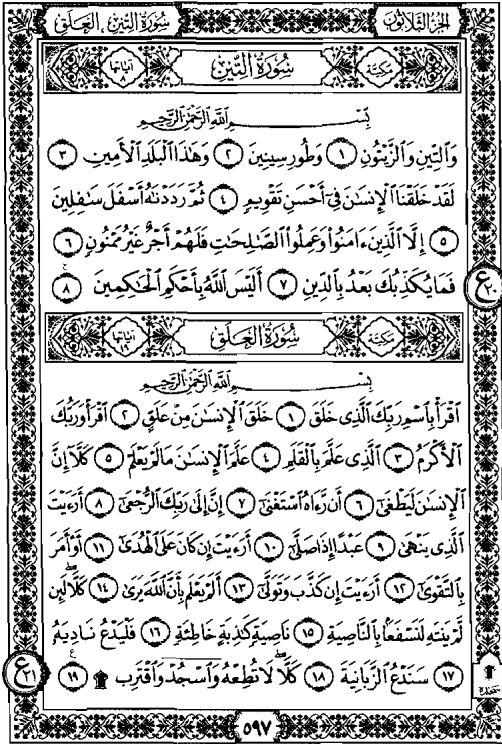 الجزء الثلاثون
سورة التين ، العلق
مكية
سُورَةُ التِّينِ
آياتها ٨
بِسْمِ ٱللَّهِ ٱلرَّحْمَٰنِ ٱلرَّحِيمِ
وَٱلتِّينِ وَٱلزَّيْتُونِ ١ وَطُورِ سِينِينَ ٢ وَهَٰذَا ٱلْبَلَدِ ٱلْأَمِينِ ٣
لَقَدْ خَلَقْنَا ٱلْإِنسَٰنَ فِىٓ أَحْسَنِ تَقْوِيمٍ ٤ ثُمَّ رَدَدْنَٰهُ أَسْفَلَ سَٰفِلِينَ
٥ إِلَّا ٱلَّذِينَ ءَامَنُوا۟ وَعَمِلُوا۟ ٱلصَّٰلِحَٰتِ فَلَهُمْ أَجْرٌ غَيْرُ مَمْنُونٍ ٦
فَمَا يُكَذِّبُكَ بَعْدُ بِٱلدِّينِ ٧ أَلَيْسَ ٱللَّهُ بِأَحْكَمِ ٱلْحَٰكِمِينَ ٨
ع ٢٠
مكية
سُورَةُ العَلَقِ
آياتها ١٩
بِسْمِ ٱللَّهِ ٱلرَّحْمَٰنِ ٱلرَّحِيمِ
ٱقْرَأْ بِٱسْمِ رَبِّكَ ٱلَّذِى خَلَقَ ١ خَلَقَ ٱلْإِنسَٰنَ مِنْ عَلَقٍ ٢ ٱقْرَأْ وَرَبُّكَ
ٱلْأَكْرَمُ ٣ ٱلَّذِى عَلَّمَ بِٱلْقَلَمِ ٤ عَلَّمَ ٱلْإِنسَٰنَ مَا لَمْ يَعْلَمْ ٥ كَلَّآ إِنَّ
ٱلْإِنسَٰنَ لَيَطْغَىٰٓ ٦ أَن رَّءَاهُ ٱسْتَغْنَىٰٓ ٧ إِنَّ إِلَىٰ رَبِّكَ ٱلرُّجْعَىٰٓ ٨ أَرَءَيْتَ
ٱلَّذِى يَنْهَىٰ ٩ عَبْدًا إِذَا صَلَّىٰٓ ١٠ أَرَءَيْتَ إِن كَانَ عَلَى ٱلْهُدَىٰٓ ١١ أَوْ أَمَرَ
بِٱلتَّقْوَىٰٓ ١٢ أَرَءَيْتَ إِن كَذَّبَ وَتَوَلَّىٰٓ ١٣ أَلَمْ يَعْلَم بِأَنَّ ٱللَّهَ يَرَىٰ ١٤ كَلَّا لَئِن
لَّمْ يَنتَهِ لَنَسْفَعًۢا بِٱلنَّاصِيَةِ ١٥ نَاصِيَةٍ كَٰذِبَةٍ خَاطِئَةٍ ١٦ فَلْيَدْعُ نَادِيَهُۥ
١٧ سَنَدْعُ ٱلزَّبَانِيَةَ ١٨ كَلَّا لَا تُطِعْهُ وَٱسْجُدْ وَٱقْتَرِب ۩ ١٩
ع ٢١
سجدة
٥٩٧